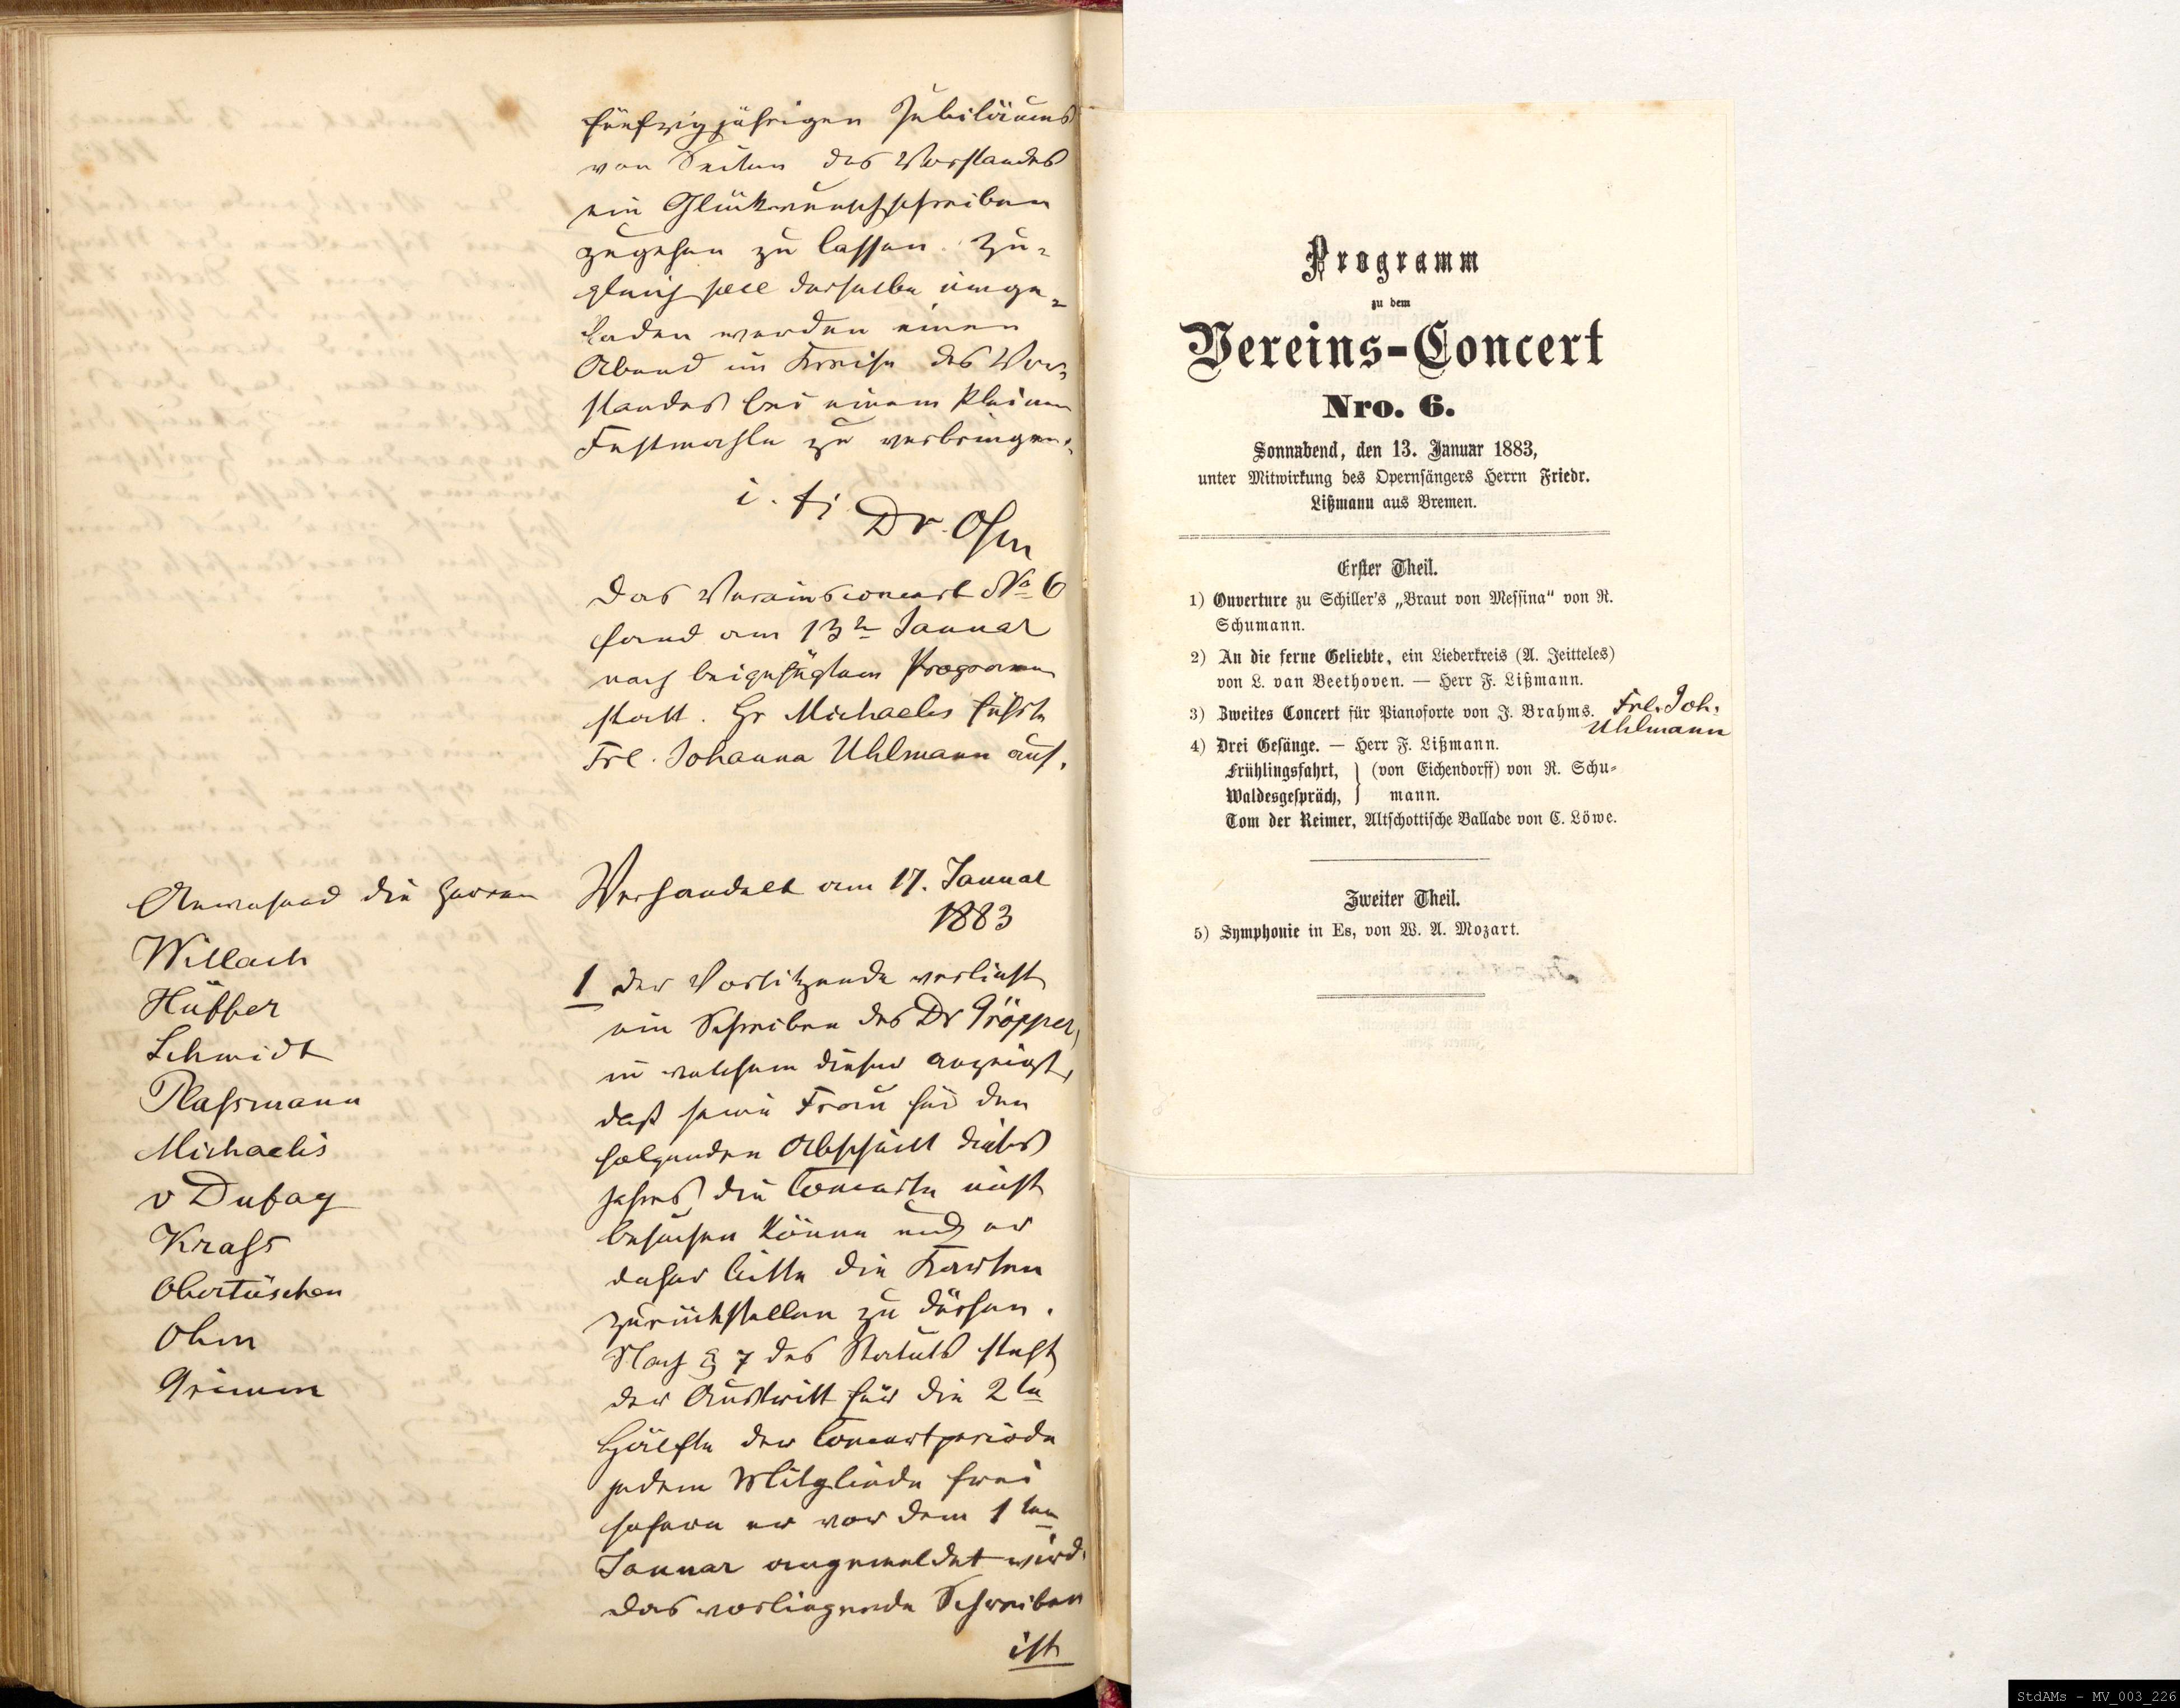 fünfzigjährigen Jubiläums
von Seiten des Vorstandes
ein Glückwunschschreiben
zugehen zu lassen. Zu-
gleich soll derselbe einge-
laden werden einen
Abend im Kreise des Vor-
standes bei einem kleinen
Festmahle zu verbringen.
i. f.
Dr. Ohm
Das Vereinsconcert No 6
fand am 13n Januar
nach beigefügtem Programm
statt. Hr Michaelis führte
Frl. Johanna Uhlmann auf.
Anwesend die Herren
Willach
Hüffer
Schmidt
Plassmann
Michaelis
v Dufay
Krass
Obertüschen
Ohm
Grimm
Verhandelt am 17. Januar
1883
1 Der Vorsitzende verliest
ein Schreiben des Dr Gröpper,
in welchem dieser anzeigt,
daß seine Frau für den
folgenden Abschnitt dieses
Jahres die Concerte nicht
besuchen könne und er
daher bitte die Karten
zurückstellen zu dürfen.
Nach § 7 des Statuts steht
der Austritt für die 2te
Hälfte der Concertperiode
jedem Mitgliede frei
sofern er vor dem 1ten
Januar angemeldet wird.
Das vorliegende Schreiben
ist
Programm
zu dem
Vereins-Concert
Nro. 6.
Sonnabend, den 13. Januar 1883,
unter Mitwirkung des Opernsängers Herrn Friedr.
Lißmann aus Bremen.
Erster Theil.
1) Ouverture zu Schiller's „Braut von Messina" von R.
Schumann.
2) An die ferne Geliebte, ein Liederkreis (A. Jeitteles)
von L. van Beethoven. — Herr F. Lißmann.
3) Zweites Concert für Pianoforte von J. Brahms. Frl. Joh.
Uhlmann
4) Drei Gesänge. — Herr F. Lißmann.
Frühlingsfahrt, } (von Eichendorff) von R. Schu-
Waldesgespräch, } mann.
Tom der Reimer, Altschottische Ballade von C. Löwe.
Zweiter Theil.
5) Symphonie in Es, von W. A. Mozart.
StdAMs - MV_003_226